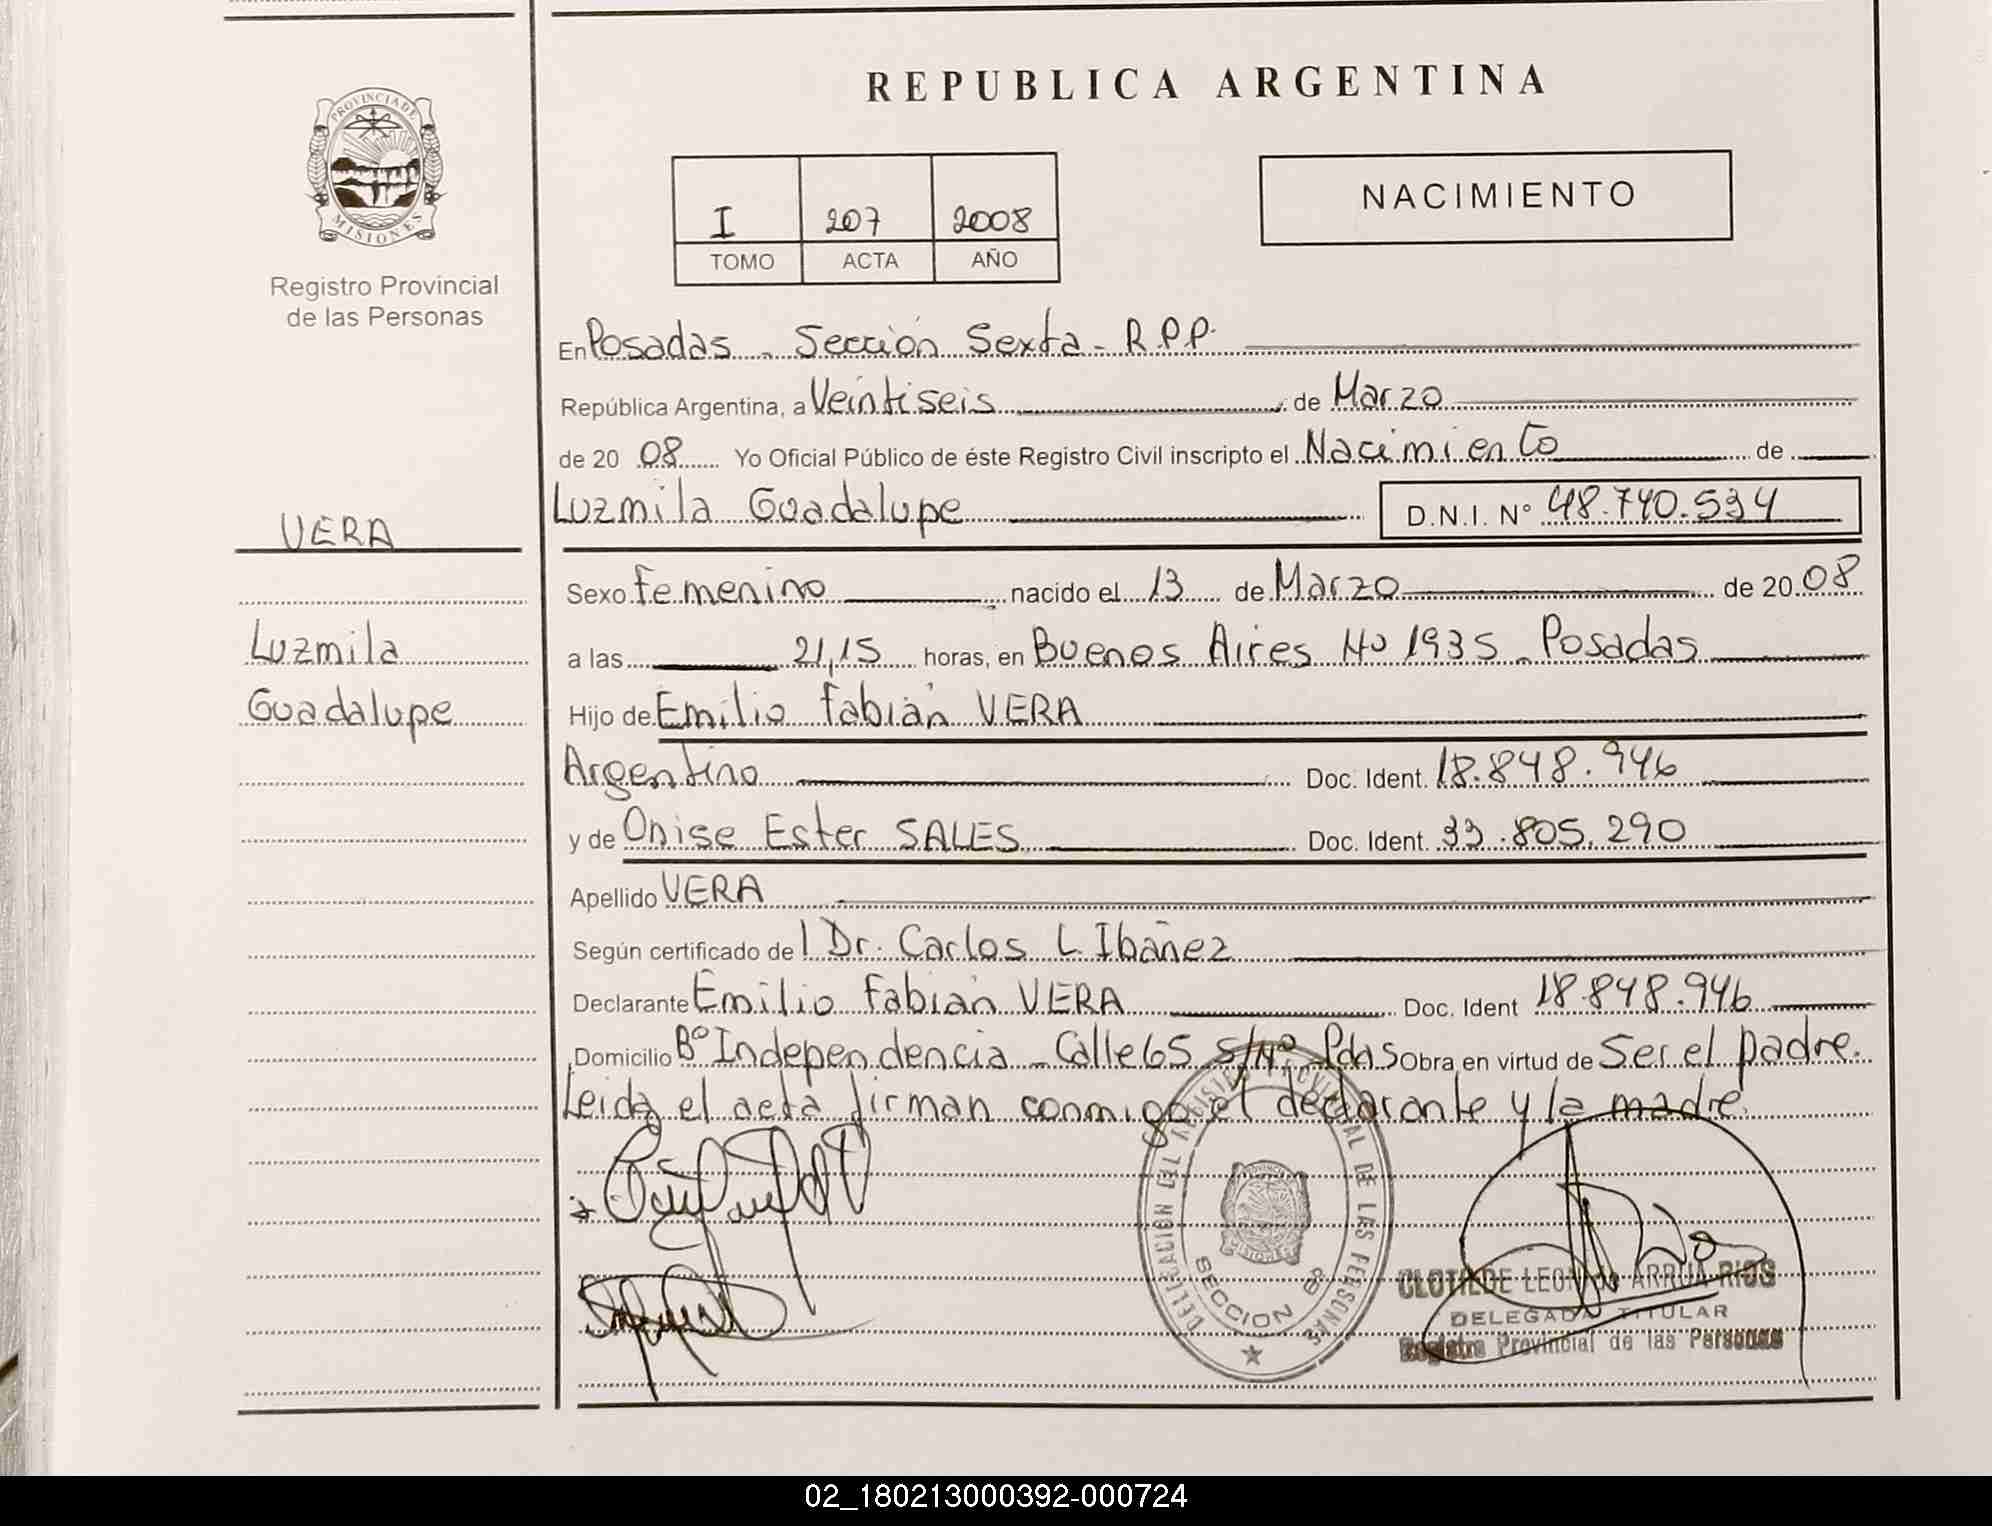 REPUBLICA ARGENTINA
PROVINCIA DE
MISIONES
Registro Provincial
de las Personas
I 207 2008
TOMO ACTA AÑO
NACIMIENTO
En Posadas - Sección Sexta - R.P.P.
República Argentina, a Veintiseis de Marzo
de 20 08 Yo Oficial Público de éste Registro Civil inscripto el Nacimiento de
VERA
Luzmila Guadalupe D.N.I. Nº 48.740.534
Sexo Femenino nacido el 13 de Marzo de 20 08
Luzmila
a las 21,15 horas, en Buenos Aires Nº 1935 - Posadas
Guadalupe
Hijo de Emilio Fabián VERA
Argentino Doc. Ident. 18.848.946
y de Onise Ester SALES Doc. Ident. 33.805.290
Apellido VERA
Según certificado de l Dr. Carlos L. Ibañez
Declarante Emilio Fabián VERA Doc. Ident 18.848.946
Domicilio Bº Independencia - Calle 65 S/Nº - Pdas Obra en virtud de Ser el padre.
Leida el acta firman conmigo el declarante y la madre.
DELEGACION DEL REGISTRO PROVINCIAL DE LAS PERSONAS
SECCION 6ª
MISIONES
CLOTILDE LEON de ARRUA RIOS
DELEGADA TITULAR
Registro Provincial de las Personas
02_180213000392-000724